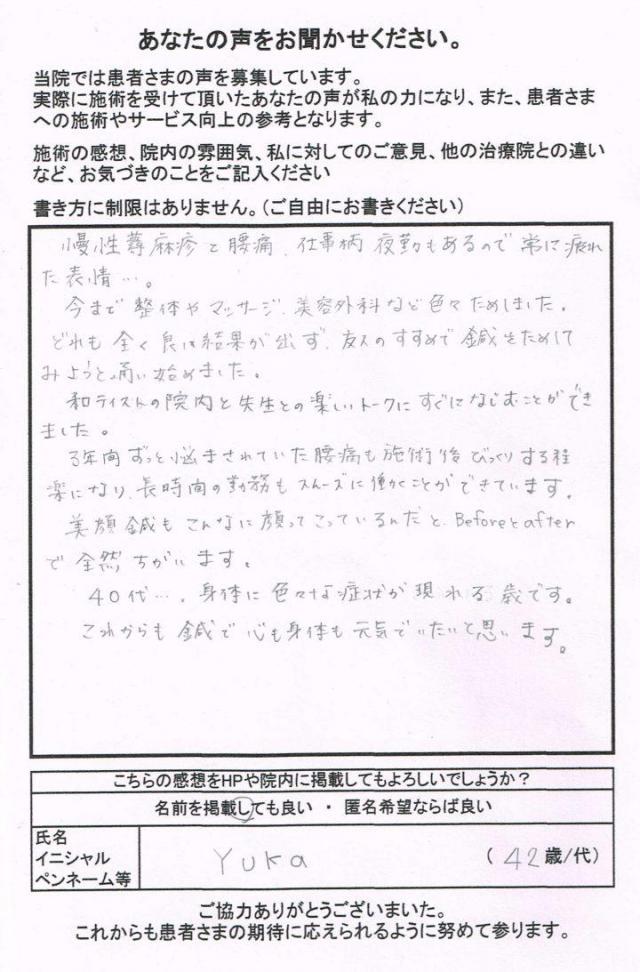 あなたの声をお聞かせください。
当院では患者さまの声を募集しています。
実際に施術を受けて頂いたあなたの声が私の力になり、また、患者さま
への施術やサービス向上の参考となります。
施術の感想、院内の雰囲気、私に対してのご意見、他の治療院との違い
など、お気づきのことをご記入ください
書き方に制限はありません。（ご自由にお書きください）
慢性蕁麻疹と腰痛、仕事柄夜勤もあるので常に疲れ
た表情…。
今まで整体やマッサージ、美容外科など色々ためしました。
どれも全く良い結果が出ず、友人のすすめで鍼をためして
みようと通い始めました。
和テイストの院内と先生との楽しいトークにすぐになじむことができ
ました。
3年間ずっと悩まされていた腰痛も施術後びっくりする程
楽になり、長時間の勤務もスムーズに働くことができています。
美顔鍼もこんなに顔ってこっているんだと、Beforeとafter
で全然ちがいます。
40代…、身体に色々な症状が現れる歳です。
これからも鍼で心も身体も元気でいたいと思います。
こちらの感想をHPや院内に掲載してもよろしいでしょうか？
名前を掲載しても良い ・ 匿名希望ならば良い
氏名
イニシャル
ペンネーム等
YUKA
（ 42 歳/代）
ご協力ありがとうございまいた。
これからも患者さまの期待に応えられるように努めて参ります。